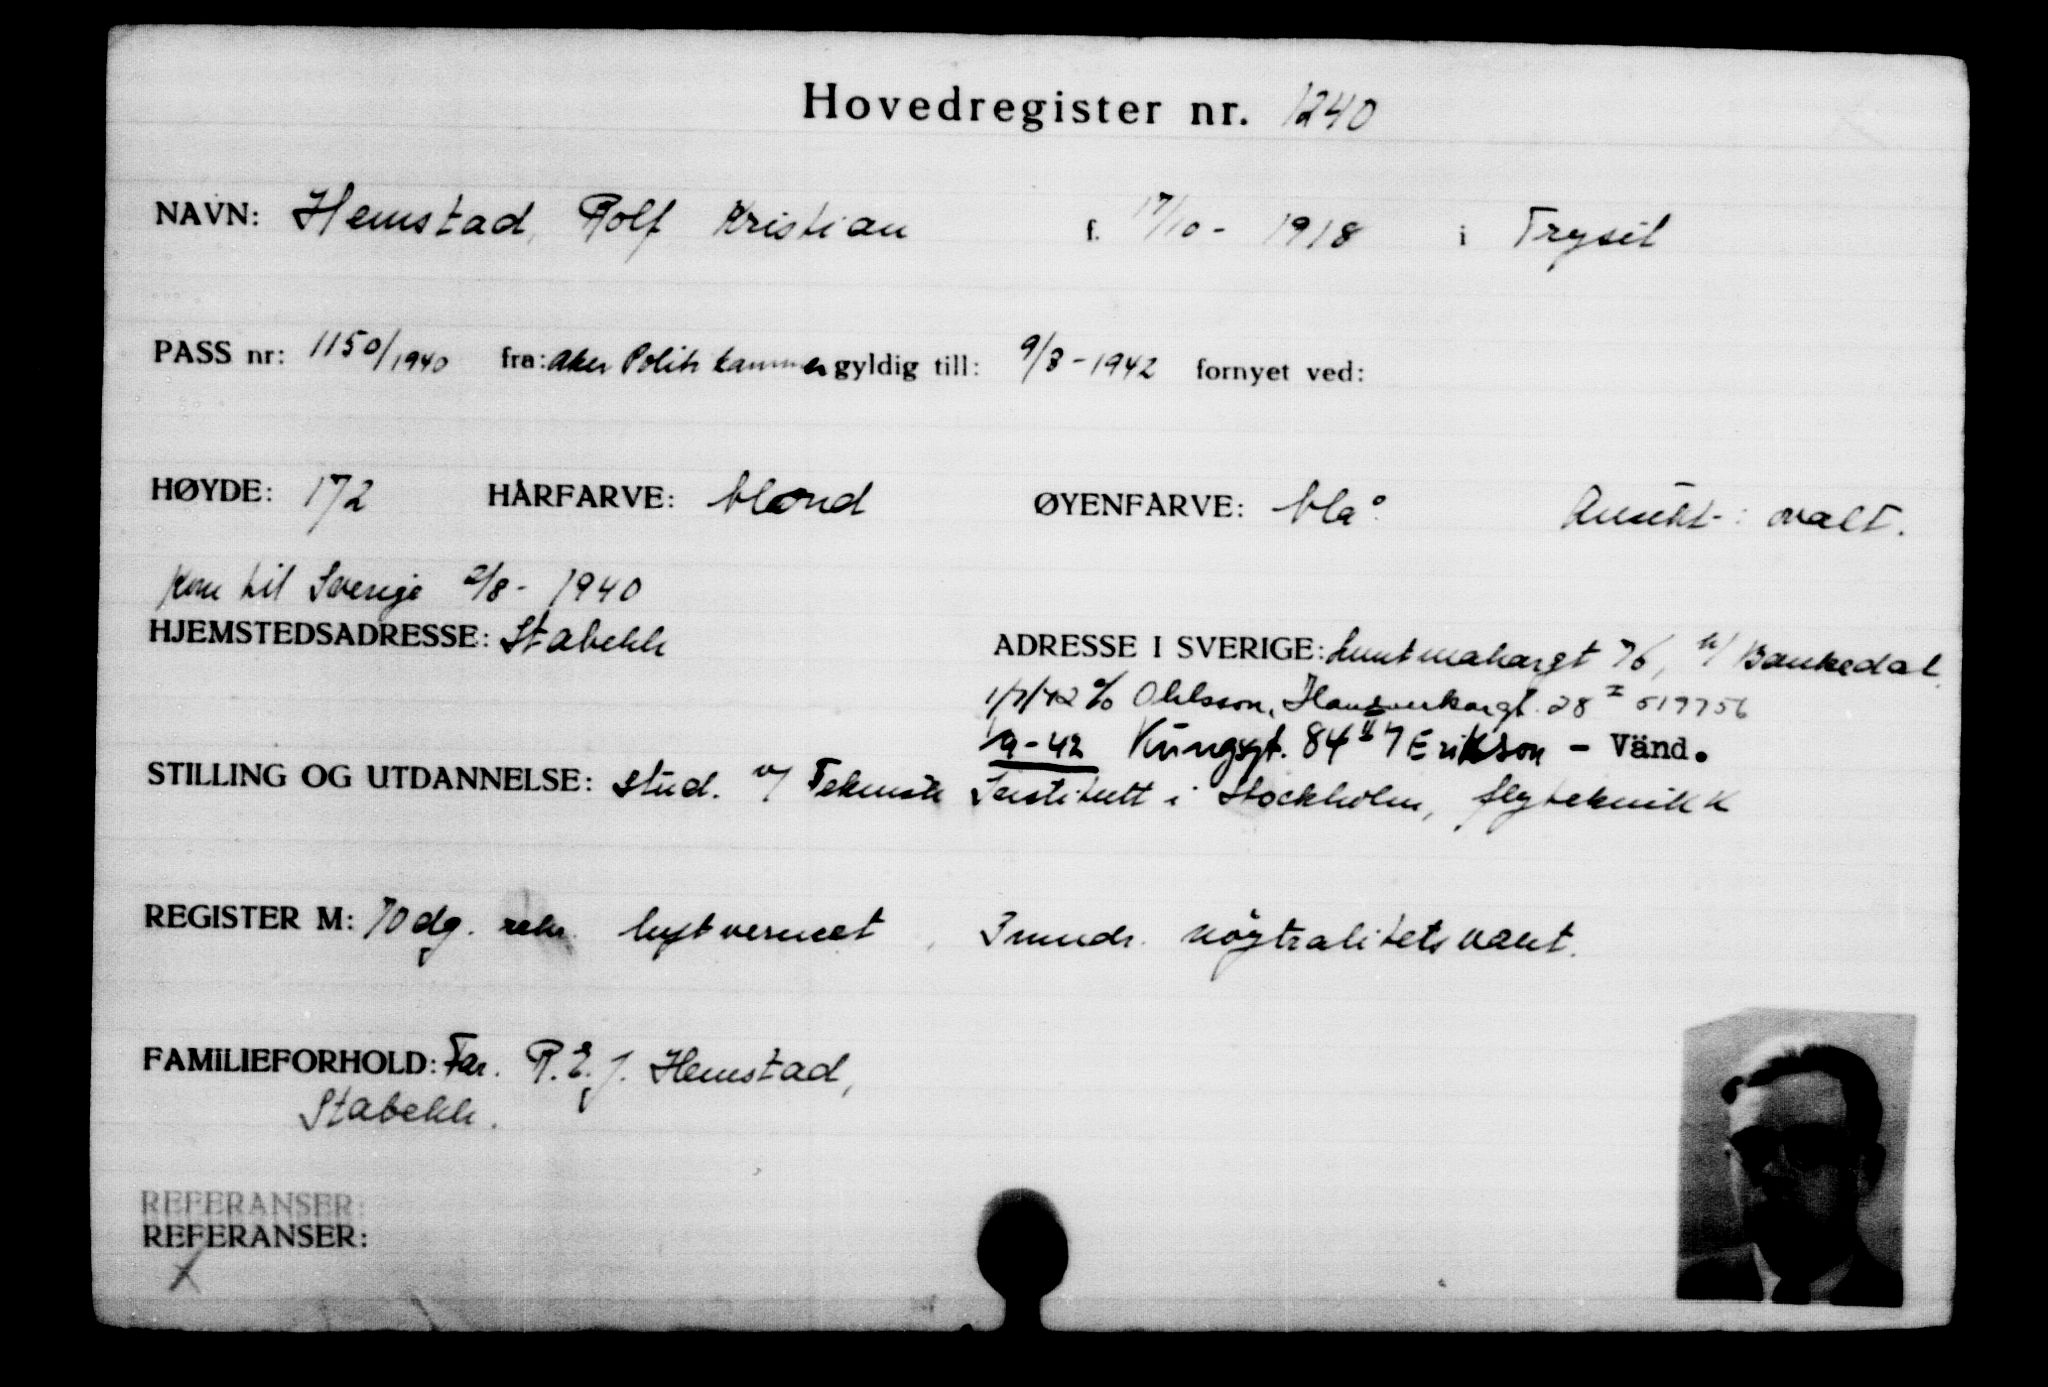 Hovedregister nr. 1240
NAVN: Hemstad, Rolf Kristian f. 17/10 - 1918 i Trysil
PASS nr: 1150/1940 fra: Aker Politikammer gyldig till: 9/8 - 1942 fornyet ved:
HØYDE: 172 HÅRFARVE: blond ØYENFARVE: blå Ansikt: ovalt.
Kom til Sverige 2/8 - 1940
HJEMSTEDSADRESSE: Stabekk ADRESSE I SVERIGE: Luntmakargt 76, v/ Bankedal
1/7/42 c/o Ohlsson, Hantverkargt. 28 I 519756
1/9-42 Kungsgt. 84 II Erikson - Vänd.
STILLING OG UTDANNELSE: stud. v/ Teknisk Institutt i Stockholm, flyteknikk
REGISTER M: 70 dg. rekr. luftvernet, 3 mndr. nøytralitetsvakt.
FAMILIEFORHOLD: Far. R. E. J. Hemstad,
Stabekk.
REFERANSER:
REFERANSER:
X